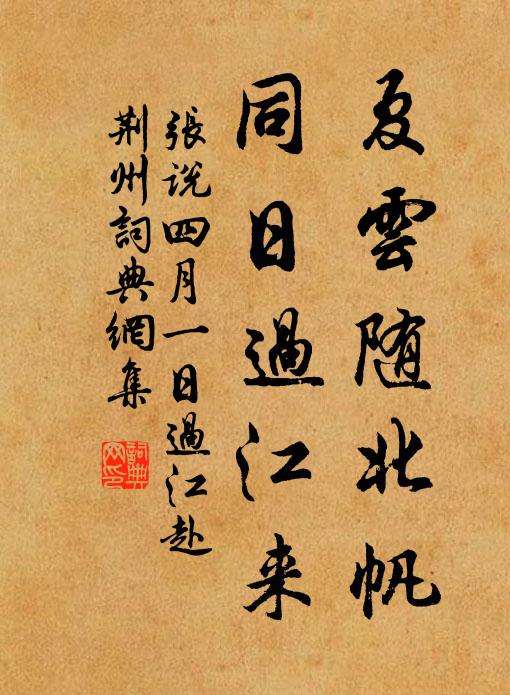 夏雲随北帆
同日過江来
張説四月一日過江赴
荆州詞典網集
詞典网印